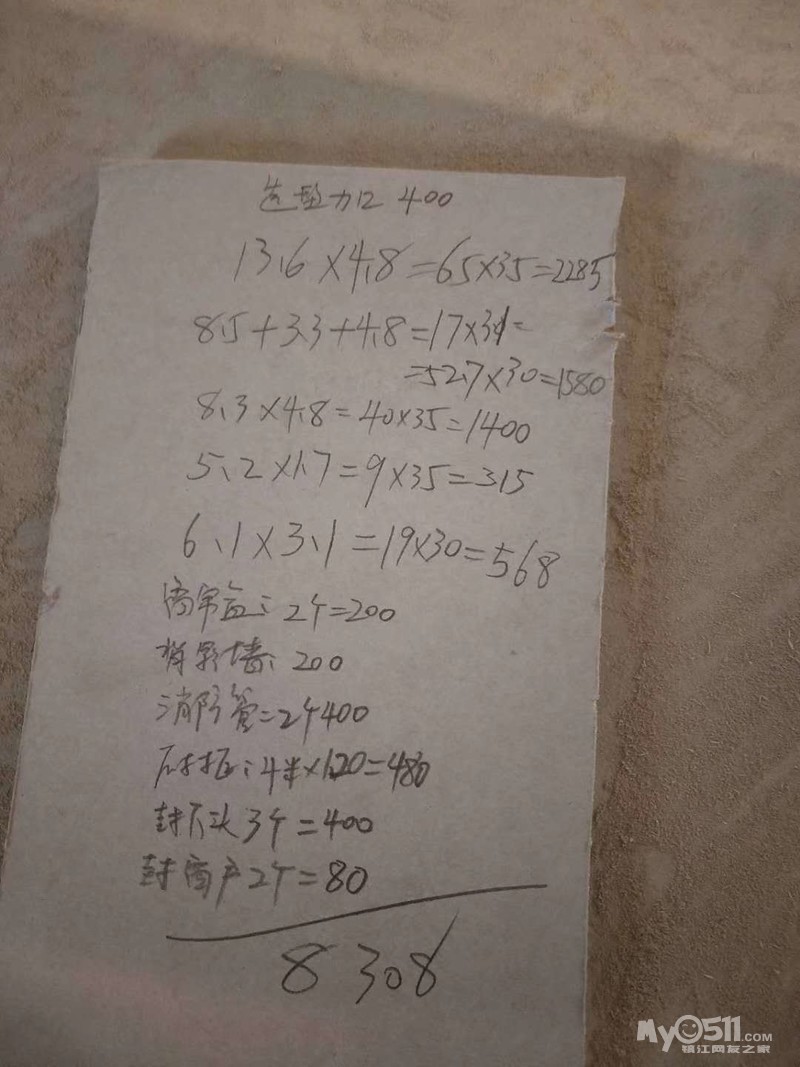 造型加 400
13.6×4.8=65×35=2285
8.5+3.3+4.8=17×3.1=
=52.7×30=1580
8.3×4.8=40×35=1400
5.2×1.7=9×35=315
6.1×3.1=19×30=568
窗帘盒: 2个=200
背影墙: 200
消防管=2个400
石材柜:4米×120=480
封石头3个=400
封窗户2个=80
8308
My0511.COM
镇江网友之家